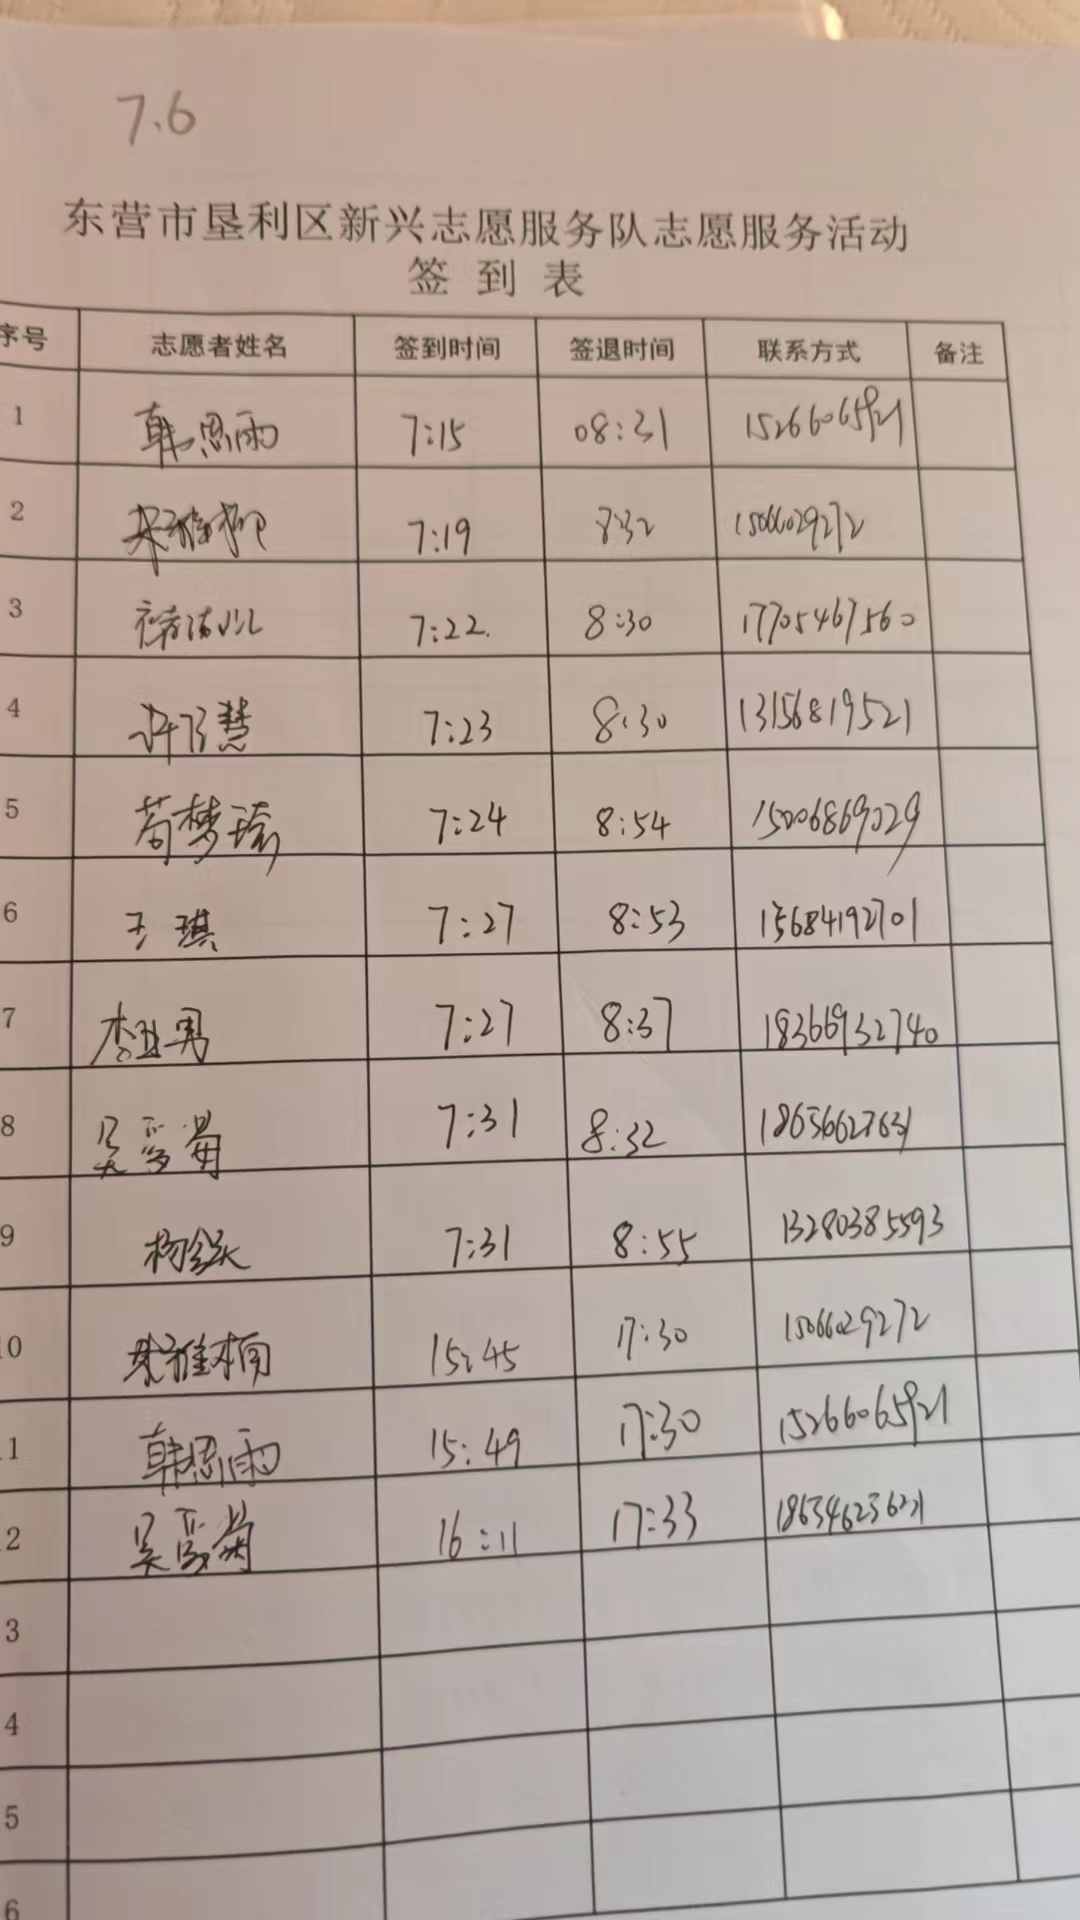 7.6
东营市垦利区新兴志愿服务队志愿服务活动
签到表
序号 志愿者姓名 签到时间 签退时间 联系方式 备注
1 韩思雨 7:15 08:31 15266065921
2 7:19 8:32 15066029272
3 7:22. 8:30 17705467560
4 许乃慧 7:23 8:30 13156819521
5 荀梦瑶 7:24 8:54 15006869029
6 王琪 7:27 8:53 15684192701
7 李亚男 7:27 8:37 18366932740
8 7:31 8:32
9 7:31 8:55 13280385593
0 15:45 17:30 15066029272
1 韩思雨 15:49 17:30 15266065921
2 16:11 17:33
3
4
5
6